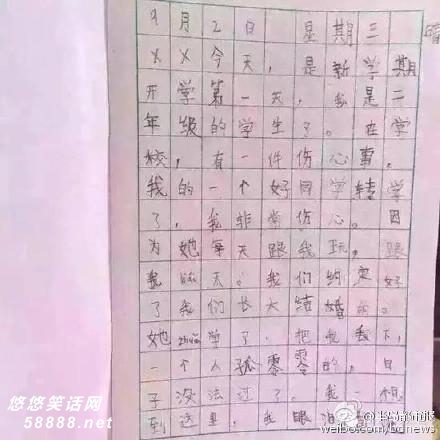 9月2日 星期三 晴
××今天，是新学期
开学第一天，我是二
年级的学生了。在学
校，有一件伤心事。
我的一个好同学转学
了，我非常伤心。因
为她每天跟我玩，跟
我聊天。我们约定好
了我们长大结婚的。
她zhuǎn学了，把我丢下，
一个人孤零零的，日
子没法过了，我一想
到这里，我眼泪
悠悠笑话网
58888.com
weibo.com/bdnews